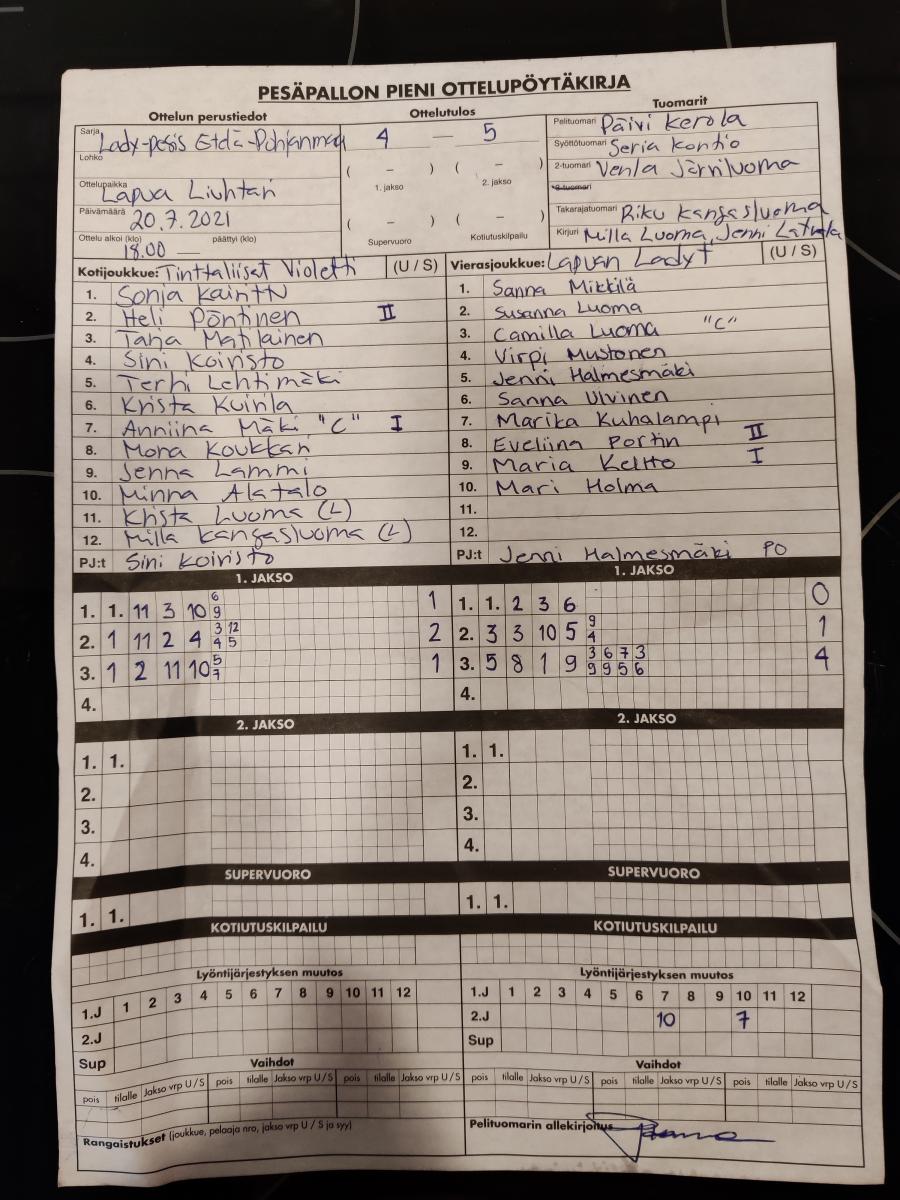 PESÄPALLON PIENI OTTELUPÖYTÄKIRJA
Ottelun perustiedot
Sarja Lady-pesis Etelä-Pohjanmaa
Lohko
Ottelupaikka Lapua Liuhtari
Päivämäärä 20.7.2021
Ottelu alkoi (klo) 18.00 päättyi (klo) —
Ottelutulos
4 — 5
( – ) ( – )
1. jakso 2. jakso
( – ) ( – )
Supervuoro Kotiutuskilpailu
Tuomarit
Pelituomari Päivi Kerola
Syöttötuomari Seria Kontio
2-tuomari Venla Järviluoma
3-tuomari
Takarajatuomari Riku Kangasluoma
Kirjuri Milla Luoma, Jenni Latvala
Kotijoukkue: Tinttaliisat Violetti (U / S)
1. Sonja
2. Heli Pöntinen II
3. Tarja Matilainen
4. Sini Koivisto
5. Terhi Lehtimäki
6. Krista Kuirla
7. Anniina Mäki "C" I
8. Mona Koukkari
9. Jenna Lammi
10. Minna Alatalo
11. Krista Luoma (L)
12. Milla Kangasluoma (L)
PJ:t Sini Koivisto
Vierasjoukkue: Lapuan Ladyt (U / S)
1. Sanna Mikkilä
2. Susanna Luoma
3. Camilla Luoma "C"
4. Virpi Mustonen
5. Jenni Halmesmäki
6. Sanna Ulvinen
7. Marika Kuhalampi
8. Eveliina Portin II
9. Maria Keltto I
10. Mari Holma
11.
12.
PJ:t Jenni Halmesmäki PO
1. JAKSO
1. 1. 11 3 10 6 9 1
2. 1 11 2 4 3 12 4 5 2
3. 1 2 11 10 5 7 1
4.
1. JAKSO
1. 1. 2 3 6 0
2. 3 3 10 5 9 4 1
3. 5 8 1 9 3 6 7 3 9 9 5 6 4
4.
2. JAKSO
1. 1.
2.
3.
4.
2. JAKSO
1. 1.
2.
3.
4.
SUPERVUORO
1. 1.
SUPERVUORO
1. 1.
KOTIUTUSKILPAILU
KOTIUTUSKILPAILU
Lyöntijärjestyksen muutos
1.J 1 2 3 4 5 6 7 8 9 10 11 12
2.J
Sup
Lyöntijärjestyksen muutos
1.J 1 2 3 4 5 6 7 8 9 10 11 12
2.J 10 7
Sup
Vaihdot
pois tilalle Jakso vrp U / S pois tilalle Jakso vrp U / S pois tilalle Jakso vrp U / S
Vaihdot
pois tilalle Jakso vrp U / S pois tilalle Jakso vrp U / S pois tilalle Jakso vrp U / S
Rangaistukset (joukkue, pelaaja nro, jakso vrp U / S ja syy)
Pelituomarin allekirjoitus